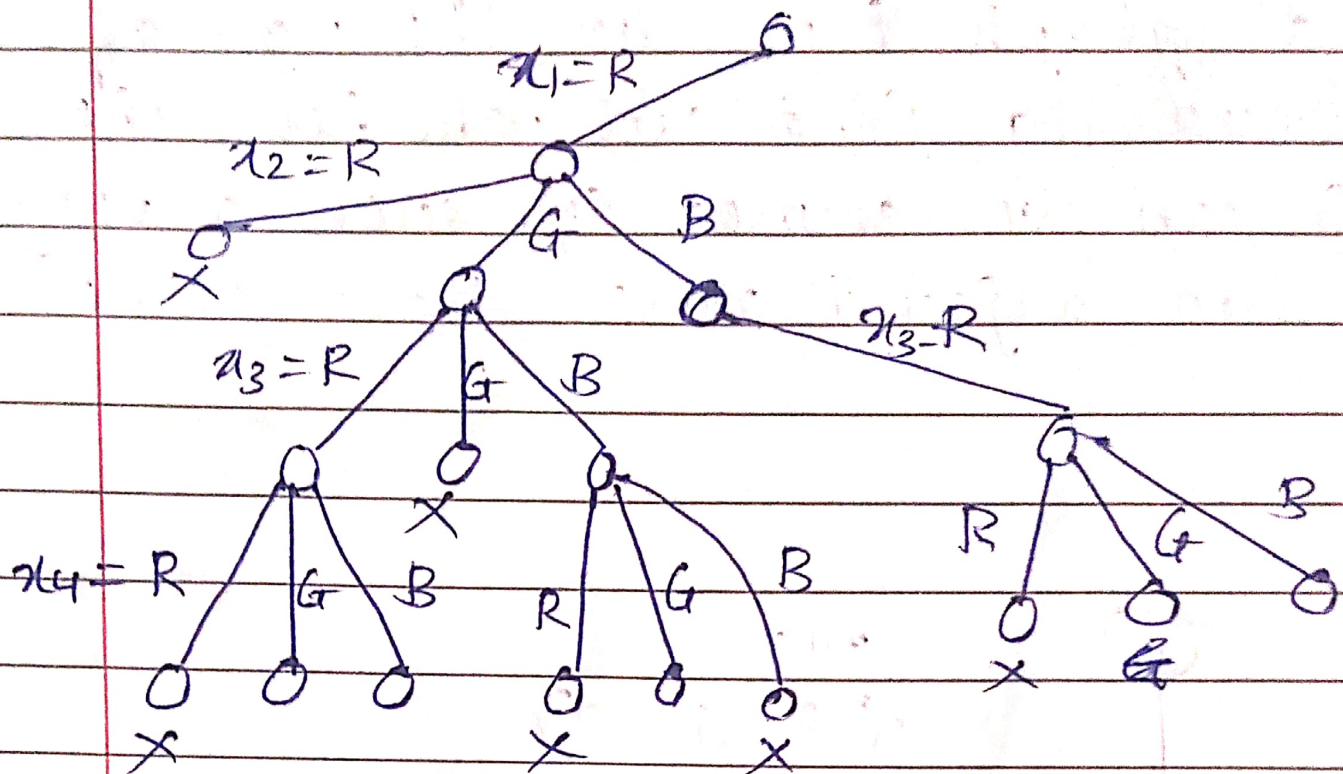 x1=R
x2=R
G B
x3=R G B x3=R
X
X
R G B
x4=R G B R G B
X G
X X X